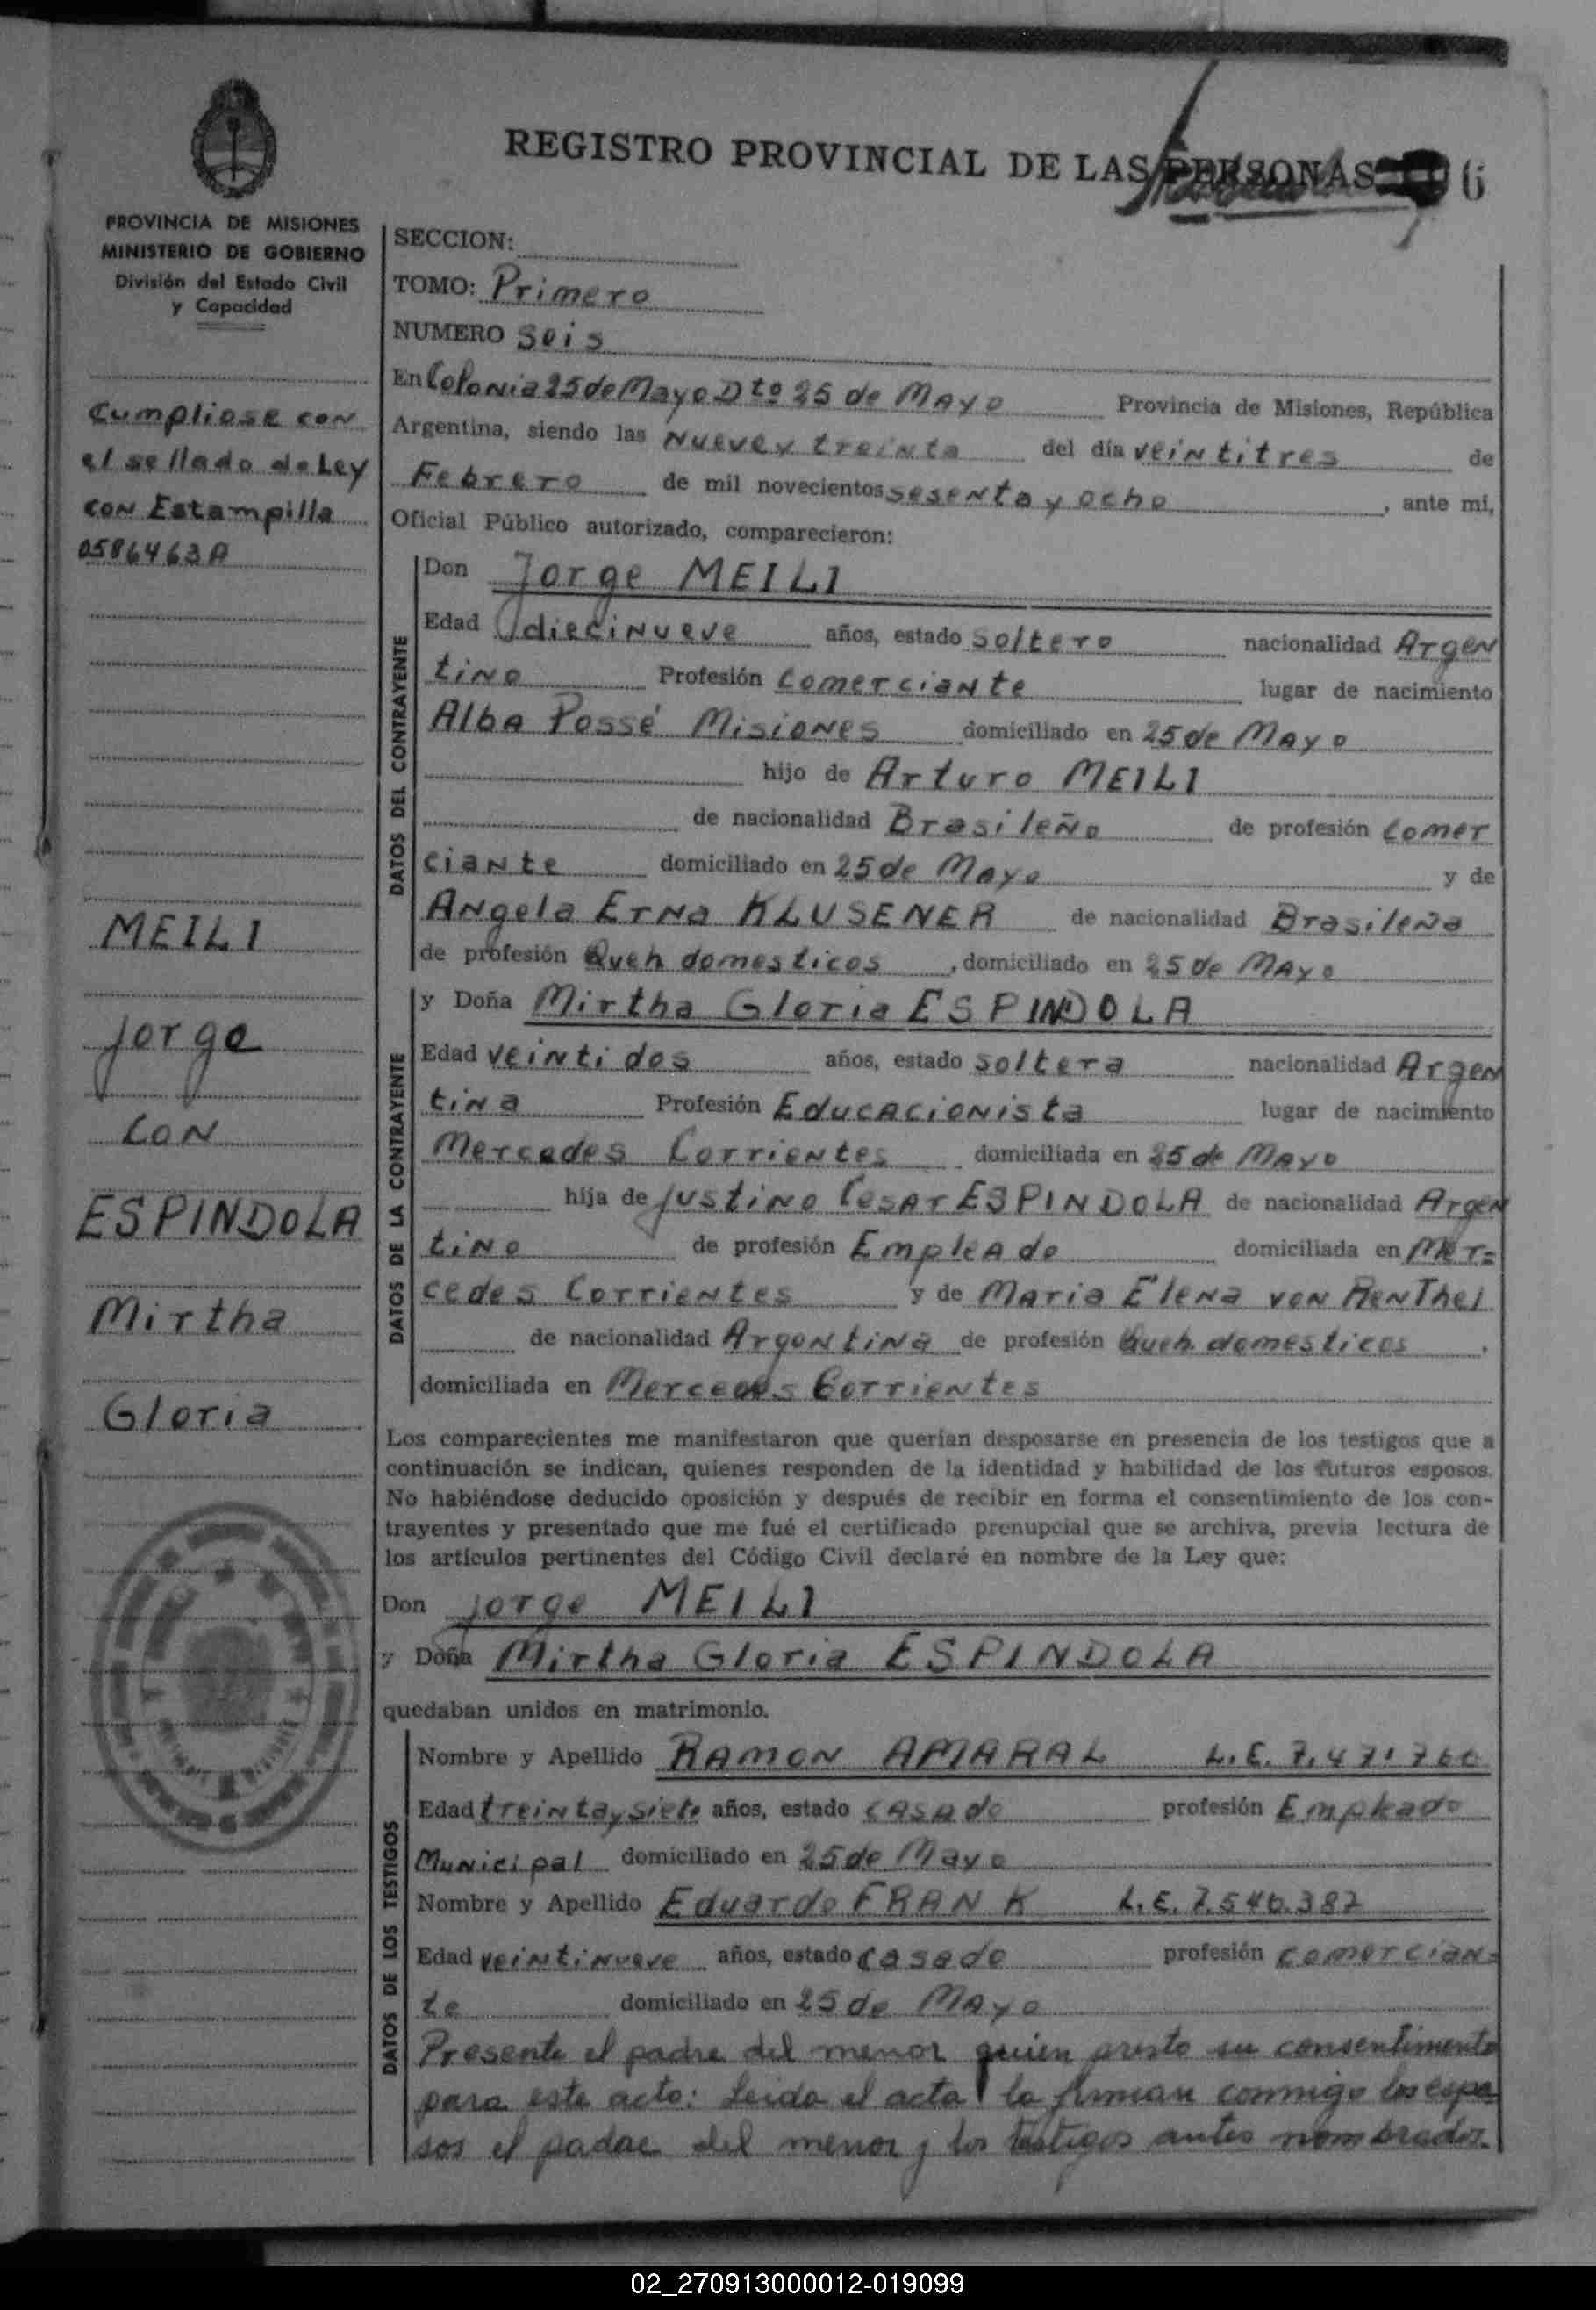 REGISTRO PROVINCIAL DE LAS PERSONAS 6
PROVINCIA DE MISIONES
MINISTERIO DE GOBIERNO
División del Estado Civil
y Capacidad
Cumpliose con
el sellado de Ley
con Estampilla
0586463A
MEILI
Jorge
CON
ESPINDOLA
Mirtha
Gloria
SECCION:
TOMO: Primero
NUMERO Seis
En Colonia 25 de Mayo Dto 25 de Mayo Provincia de Misiones, República
Argentina, siendo las Nueve y treinta del día veintitres de
Febrero de mil novecientos sesenta y ocho, ante mi,
Oficial Público autorizado, comparecieron:
DATOS DEL CONTRAYENTE
Don Jorge MEILI
Edad diecinueve años, estado soltero nacionalidad Argen
tino Profesión Comerciante lugar de nacimiento
Alba Possé Misiones domiciliado en 25 de Mayo
hijo de Arturo MEILI
de nacionalidad Brasileño de profesión Comer
ciante domiciliado en 25 de Mayo y de
Angela Erna KLUSENER de nacionalidad Brasileña
de profesión Queh domesticos, domiciliado en 25 de Mayo
DATOS DE LA CONTRAYENTE
y Doña Mirtha Gloria ESPINDOLA
Edad veinti dos años, estado soltera nacionalidad Argen
tina Profesión Educacionista lugar de nacimiento
Mercedes Corrientes domiciliada en 25 de Mayo
hija de Justino Cesar ESPINDOLA de nacionalidad Argen
tino de profesión Empleado domiciliada en Mer=
cedes Corrientes y de Maria Elena von
de nacionalidad Argentina de profesión Queh domesticos,
domiciliada en Mercedes Corrientes
Los comparecientes me manifestaron que querían desposarse en presencia de los testigos que a
continuación se indican, quienes responden de la identidad y habilidad de los futuros esposos.
No habiéndose deducido oposición y después de recibir en forma el consentimiento de los con-
trayentes y presentado que me fué el certificado prenupcial que se archiva, previa lectura de
los artículos pertinentes del Código Civil declaré en nombre de la Ley que:
Don Jorge MEILI
y Doña Mirtha Gloria ESPINDOLA
quedaban unidos en matrimonio.
DATOS DE LOS TESTIGOS
Nombre y Apellido RAMON AMARAL L.E.
Edad treinta y siete años, estado casado profesión Empleado
Municipal domiciliado en 25 de Mayo
Nombre y Apellido Eduardo FRANK L.E. 7.540.387
Edad veintinueve años, estado casado profesión comercian=
te domiciliado en 25 de Mayo
Presente el padre del menor quien presto su consentimento
para este acto: Leida el acta la firman conmigo los espo
sos el padre del menor y los testigos antes nombrados.
02_270913000012-019099